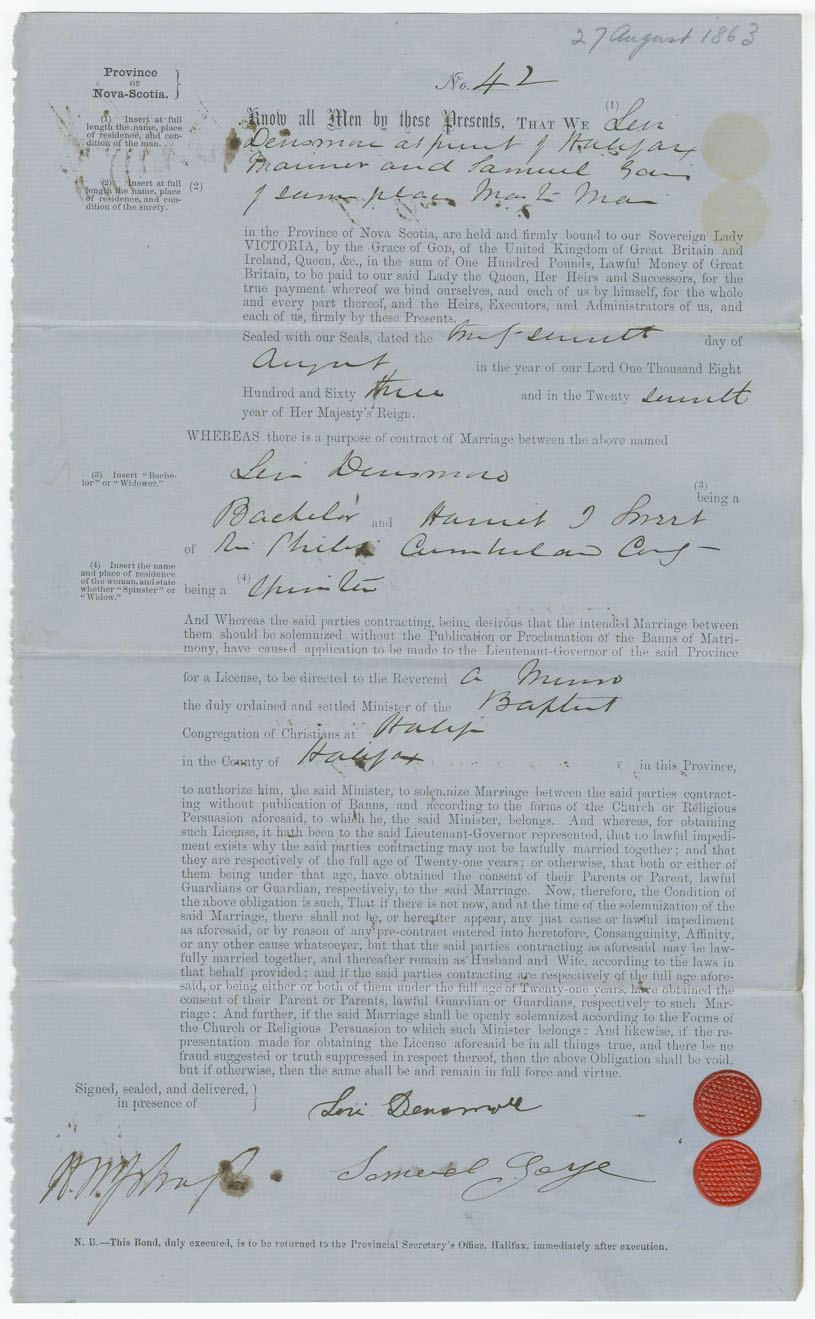 27 August 1863
Province
OF
Nova-Scotia.
No. 42
(1) Insert at full
length the name, place
of residence, and con-
dition of the man.
(1)
Know all Men by these Presents, THAT WE Levi
Densmore at present of Halifax
Mariner and Samuel
(2) Insert at full
length the name, place
of residence, and con-
dition of the surety.
(2)
of same place
in the Province of Nova Scotia, are held and firmly bound to our Sovereign Lady
VICTORIA, by the Grace of God, of the United Kingdom of Great Britain and
Ireland, Queen, &c., in the sum of One Hundred Pounds, Lawful Money of Great
Britain, to be paid to our said Lady the Queen, Her Heirs and Successors, for the
true payment whereof we bind ourselves, and each of us by himself, for the whole
and every part thereof, and the Heirs, Executors, and Administrators of us, and
each of us, firmly by these Presents.
Sealed with our Seals, dated the twenty seventh day of
August in the year of our Lord One Thousand Eight
Hundred and Sixty three and in the Twenty seventh
year of Her Majesty's Reign.
WHEREAS there is a purpose of contract of Marriage between the above named
(3) Insert "Bache-
lor" or "Widower."
Levi Densmore
(3)
being a
Bachelor and Harriet
of River Philip Cumberland
(4) Insert the name
and place of residence
of the woman, and state
whether "Spinster" or
"Widow."
being a (4) Spinster
And Whereas the said parties contracting, being desirous that the intended Marriage between
them should be solemnized without the Publication or Proclamation of the Banns of Matri-
mony, have caused application to be made to the Lieutenant-Governor of the said Province
for a License, to be directed to the Reverend A Munro
the duly ordained and settled Minister of the Baptist
Congregation of Christians at Halifx
in the County of Halifax in this Province,
to authorize him, the said Minister, to solemnize Marriage between the said parties contract-
ing without publication of Banns, and according to the forms of the Church or Religious
Persuasion aforesaid, to which he, the said Minister, belongs. And whereas, for obtaining
such License, it hath been to the said Lieutenant-Governor represented, that no lawful impedi-
ment exists why the said parties contracting may not be lawfully married together; and that
they are respectively of the full age of Twenty-one years; or otherwise, that both or either of
them being under that age, have obtained the consent of their Parents or Parent, lawful
Guardians or Guardian, respectively, to the said Marriage. Now, therefore, the Condition of
the above obligation is such, That if there is not now, and at the time of the solemnization of the
said Marriage, there shall not be, or hereafter appear, any just cause or lawful impediment
as aforesaid, or by reason of any pre-contract entered into heretofore, Consanguinity, Affinity,
or any other cause whatsoever, but that the said parties contracting as aforesaid may be law-
fully married together, and thereafter remain as Husband and Wife, according to the laws in
that behalf provided; and if the said parties contracting are respectively of the full age afore-
said, or being either or both of them under the full age of Twenty-one years, have obtained the
consent of their Parent or Parents, lawful Guardian or Guardians, respectively to such Mar-
riage: And further, if the said Marriage shall be openly solemnized according to the Forms of
the Church or Religious Persuasion to which such Minister belongs: And likewise, if the re-
presentation made for obtaining the License aforesaid be in all things true, and there be no
fraud suggested or truth suppressed in respect thereof, then the above Obligation shall be void,
but if otherwise, then the same shall be and remain in full force and virtue.
Signed, sealed, and delivered,
in presence of
Levi Densmore
Samuel Gaye
N. B.—This Bond, duly executed, is to be returned to the Provincial Secretary's Office, Halifax, immediately after execution.